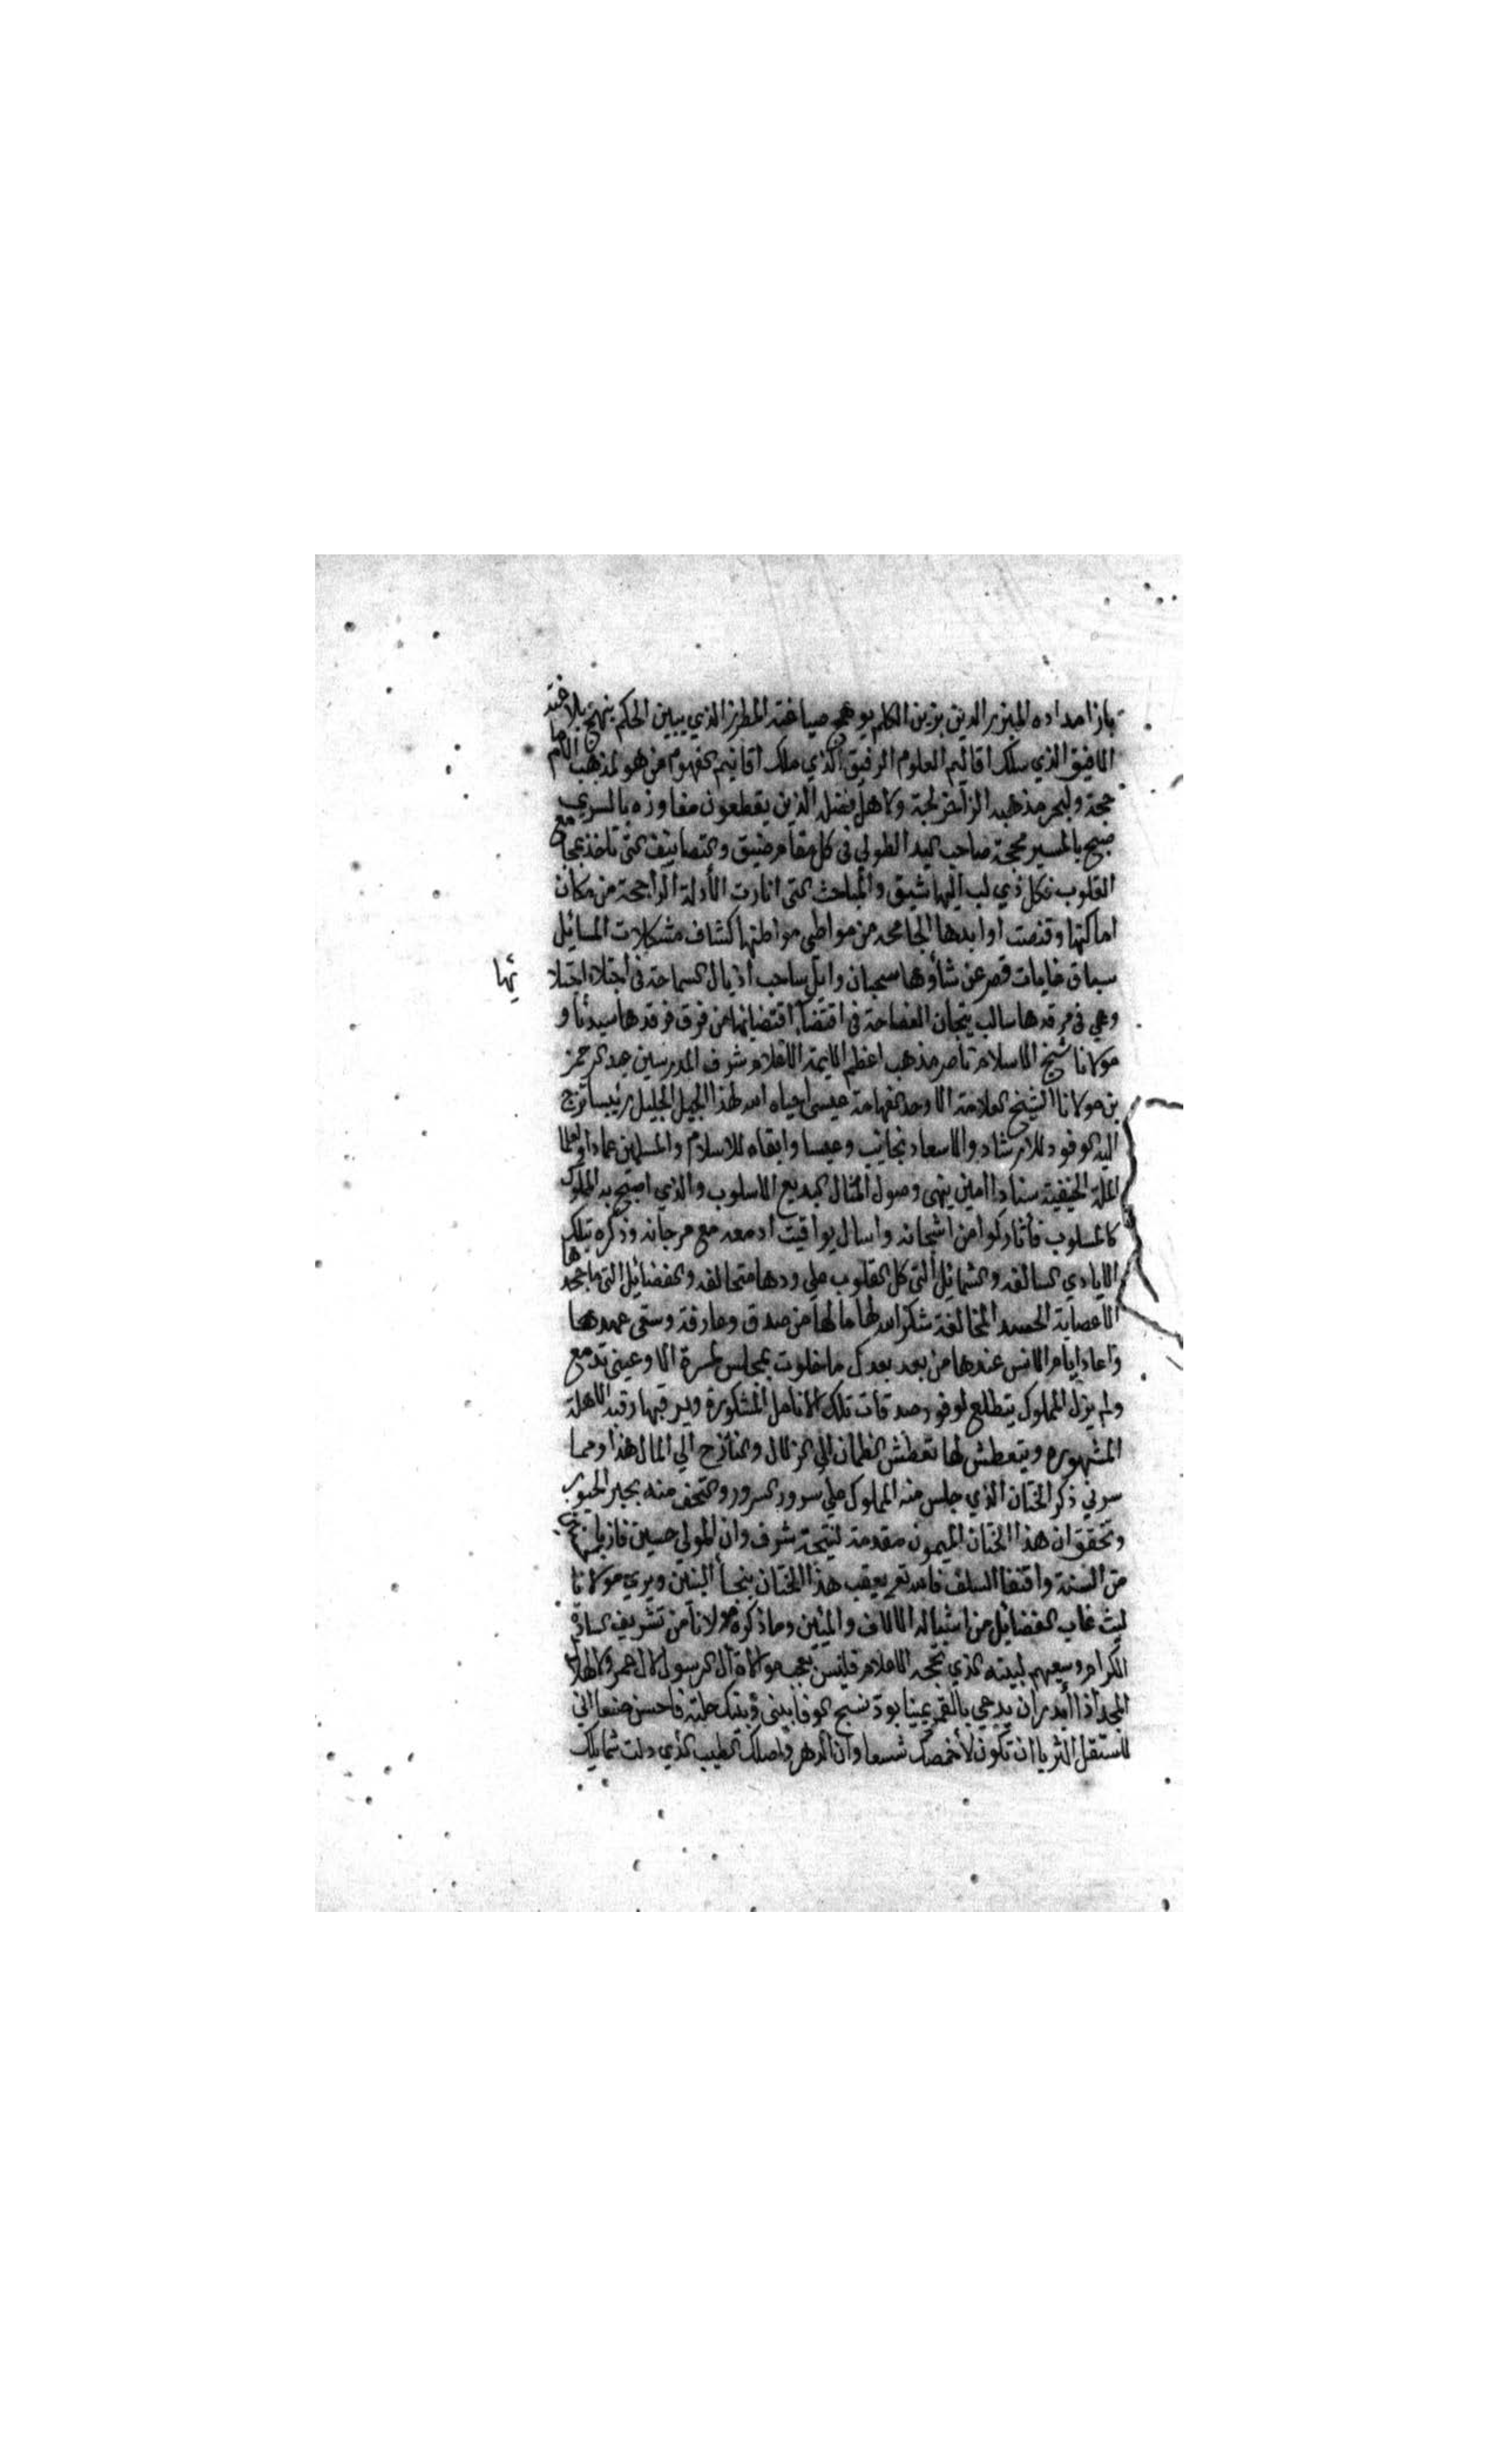 بازا مداده المبزير الذين يزين الكلم يوهج صياغته المطرز الذي يبين الحكم بنهج بلاغته
الافيق الذي سلك اقاليم العلوم الرفيق الذي ملك اقانيم الفهوم من هو لمذهب الامام
حجة ولبحر مذهبه الزاخر لجة ولاهل فضله الذين يقطعون مفاوزه بالسري
صبح بالمسير محجة صاحب اليد الطولي في كل مقام ضيق والتصانيف التي تاخذ بمجامع
القلوب فكل ذي لب اليها شيق والمباحث التي اثارت الأدلة الراجحة من مكان
اماكنها وقنصت اوابدها الجامحه من مواطي مواطنها كشاف مشكلات المسائل
سباق غايات قصر عن شأوها سحبان وايل ساحب أذيال السماحة في أجتلاء اجتلا
ئها
وهي في مرقدها سالب تيجان الفصاحة في اقتضاء اقتضائها من فرق فرقدها سيدنا و
مولانا شيخ الاسلام ناصر مذهب اعظم الايمة الاعلام شرف المدرسين عبد الرحمن
بن مولانا الشيخ العلامة الاوحد الفهامة عيسى احياه الله لهذا الجيل الجليل رئيسا تزج
اليه الوفود للارشاد والاسعاد نجائب وعيسا وابقاه للاسلام والمسلمين عمادا ولعلما
الملة الحنيفية سنادا امين ينهى وصول المثال البديع الاسلوب والذي اصبح به المملوك
كالمسلوب فأثار كوامن اشجانه واسال يواقيت أدمعه مع مرجانه وذكره تلك
الايادي السالفه والشمائل التي كل القلوب على ودها متحالفه والفضائل التي ما جحدها
الا عصابة الحسد المخالفة شكر الله لها مالها من صدق وعارفة وسقى عهدها
وأعاد ايام الانس عندها من بعد بعدك ما خلوت بمجلس لمسرة الا وعيني تدمع
ولم يزل المملوك يتطلع لوفود صدقات تلك الانامل المشكورة ويرقبها رقبة الاهلة
المشهوره ويتعطش لها تعطش الظمان الي الزلال والنازح الي المال هذا ومما
سرني ذكر الختان الذي جلس منه المملوك علي سرور السرور والتحف منه بحبر الحبور
وتحقق ان هذا الختان الميمون مقدمة لنتيجة شرف وان المولي حسين فاز بما
من السنة واقتفا السلف فالله تعالى يعقب هذا الختان بنجبأ البنين ويري مولانا
ليث غاب الفضايل من اشباله الالاف والمئين وما ذكره مولانا من تشريف السادة
الكرام وسعيهم لبيته الذي تحجه الاعلام فليس بعجب موالاة آل الرسول لآل عمر ولا لهلال
المجد اذا أبدر ان يدعي بالقمر عينا بودة نسج الوفا بيني وبينك حلته فاحسن صنعا اني
لاستقل الثريا ان تكون لأخمصك شسعا وان الدهر واصلك الطيب الذي دلت شمايلك